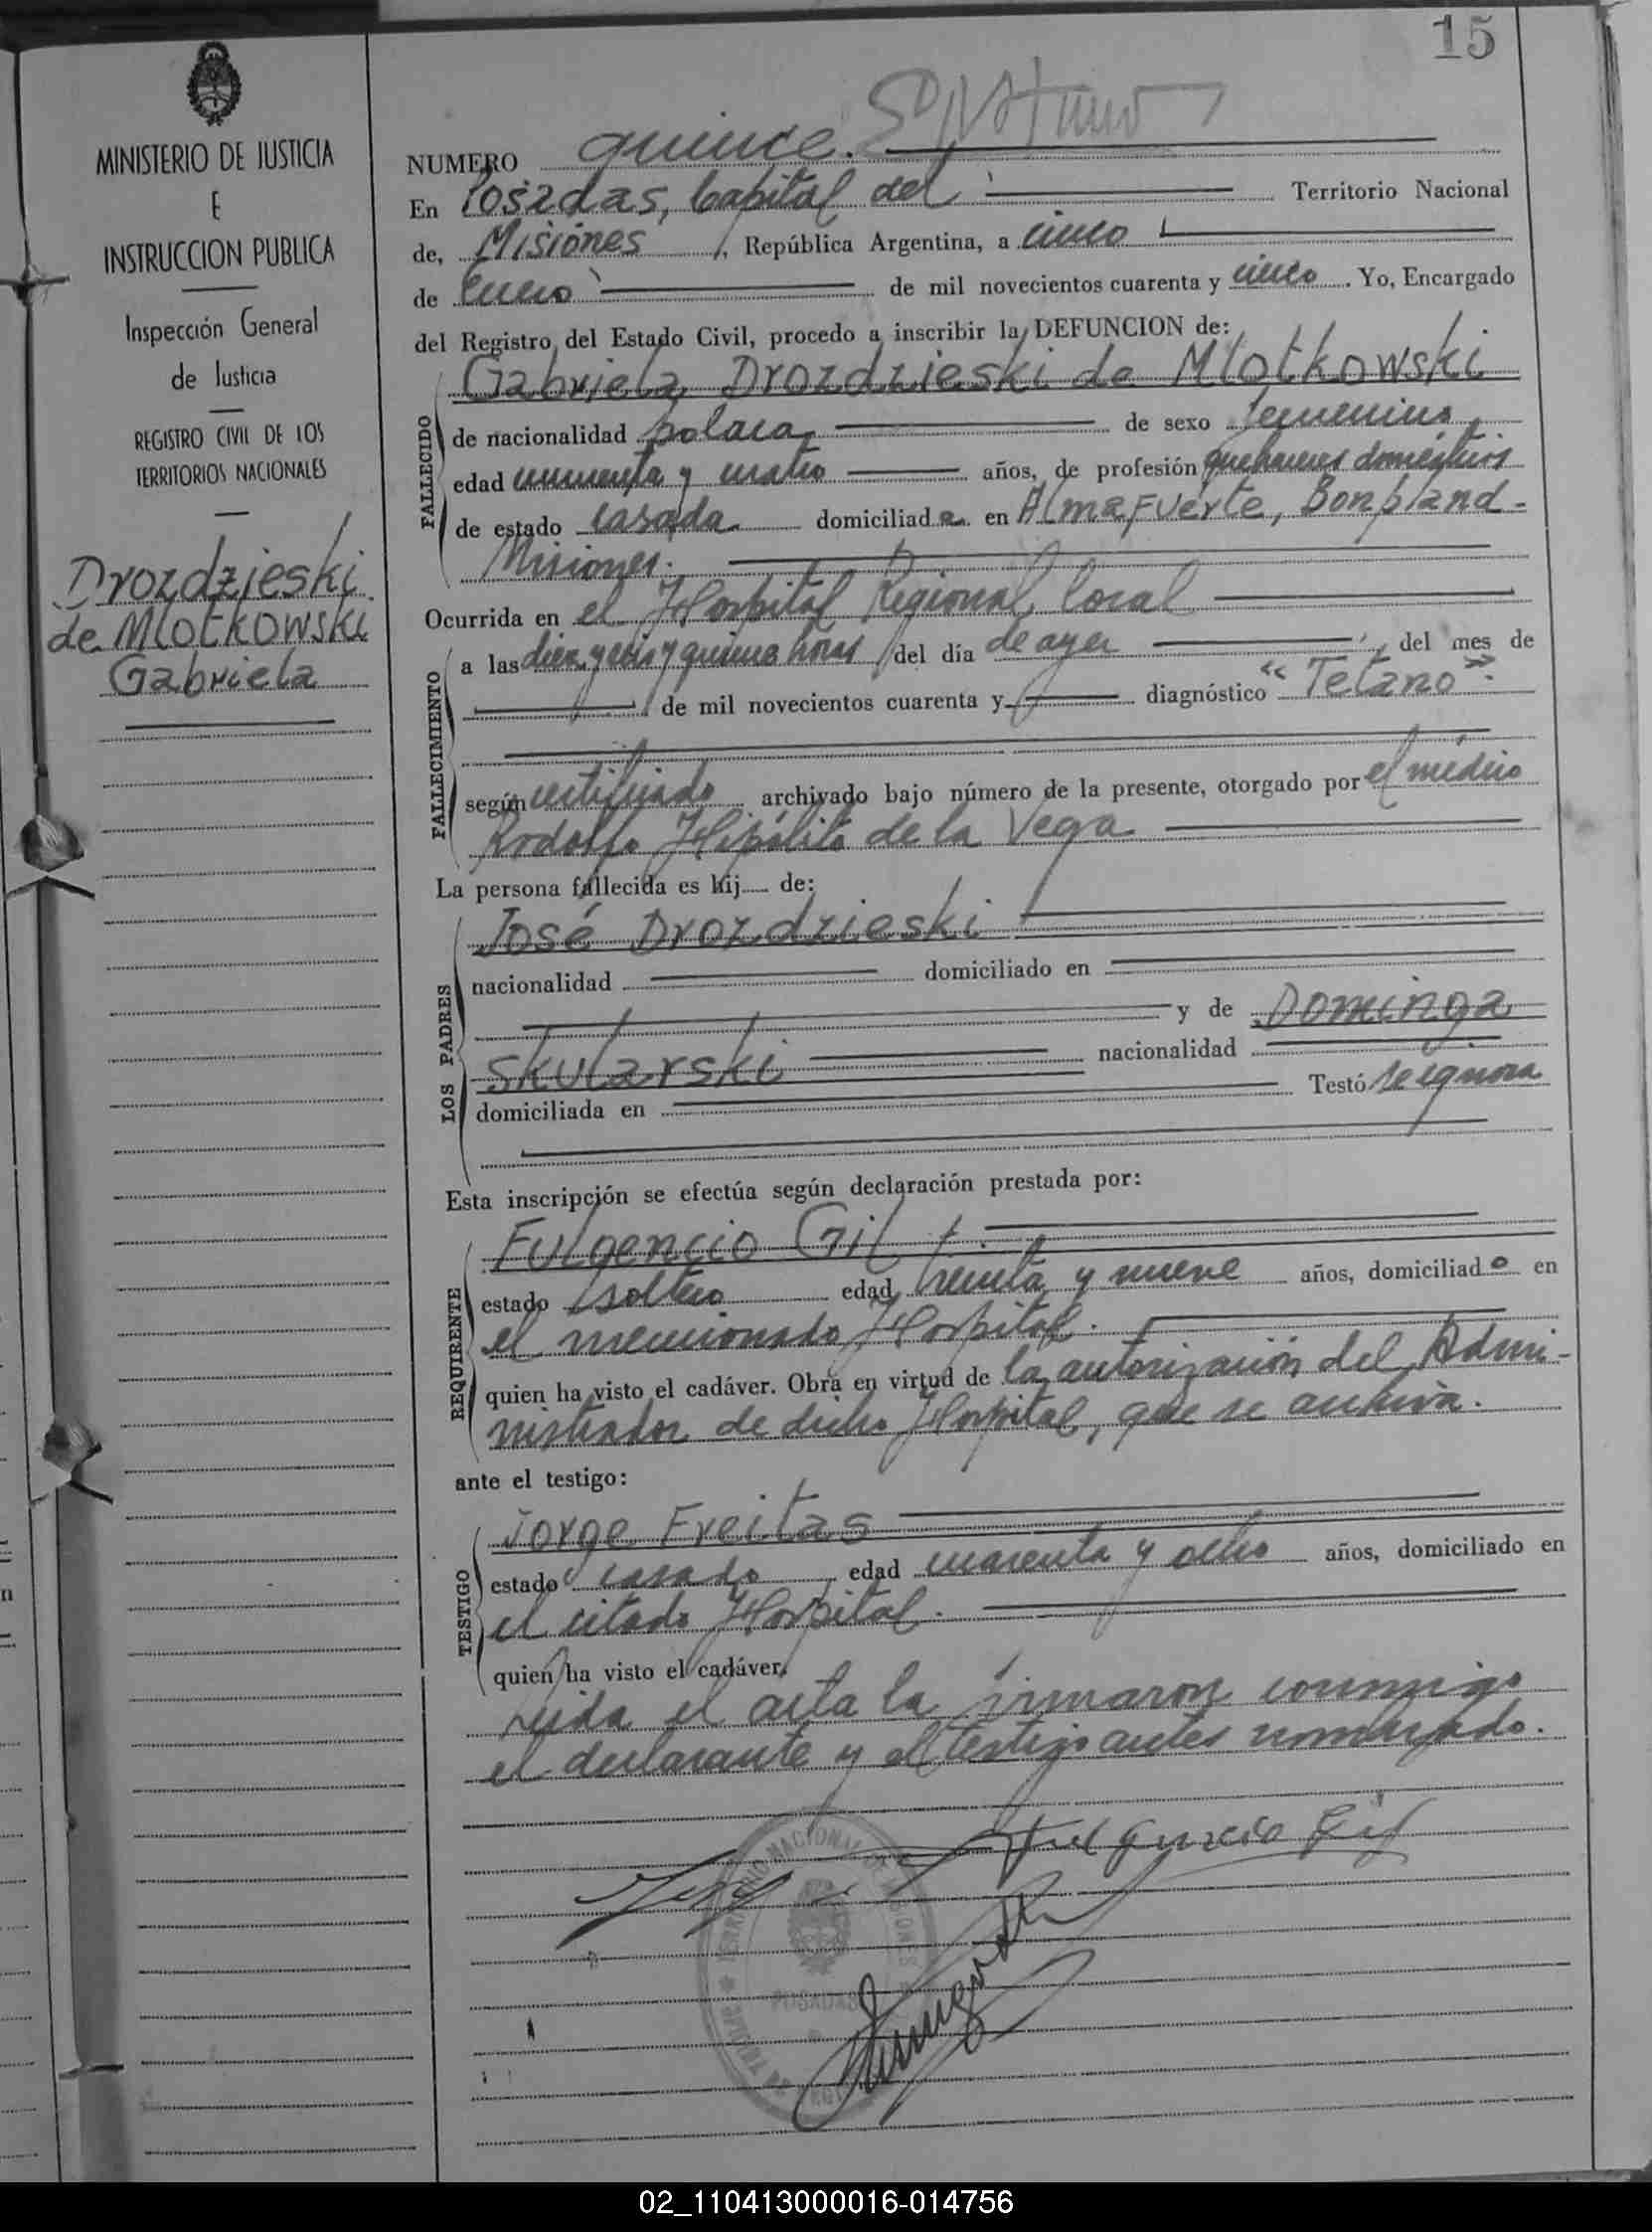 15
MINISTERIO DE JUSTICIA
E
INSTRUCCION PUBLICA
Inspección General
de Justicia
REGISTRO CIVIL DE LOS
TERRITORIOS NACIONALES
Drozdzieski
de Mlotkowski
Gabriela
NUMERO quince.
En Posadas, Capital del Territorio Nacional
de, Misiones, República Argentina, a cinco
de Enero de mil novecientos cuarenta y cinco. Yo, Encargado
del Registro del Estado Civil, procedo a inscribir la DEFUNCION de:
Gabriela Drozdzieski de Mlotkowski
FALLECIDO
de nacionalidad polaca, de sexo femenino,
edad cincuenta y cuatro años, de profesión quehaceres domésticos
de estado casada domiciliada en Almafuerte, Bonpland-
Misiones.
Ocurrida en el Hospital Regional local
FALLECIMIENTO
a las diez y seis y quince horas del día de ayer, del mes de
de mil novecientos cuarenta y diagnóstico "Tetano".
según certificado archivado bajo número de la presente, otorgado por el médico
Rodolfo Hipólito de la Vega
La persona fallecida es hij de:
LOS PADRES
José Drozdzieski
nacionalidad domiciliado en
y de Dominga
Skularski nacionalidad
domiciliada en Testó se ignora
Esta inscripción se efectúa según declaración prestada por:
REQUIRENTE
Fulgencio Gil
estado soltero edad treinta y nueve años, domiciliado en
el mencionado Hospital.
quien ha visto el cadáver. Obra en virtud de la autorización del Admi-
nistrador de dicho Hospital, que se archiva.
ante el testigo:
TESTIGO
Jorge Freitas
estado casado, edad cuarenta y ocho años, domiciliado en
el citado Hospital.
quien ha visto el cadáver.
Leida el acta la firmaron conmigo
el declarante y el testigo antes nombrado.
Fulgencio Gil
POSADAS
02_110413000016-014756